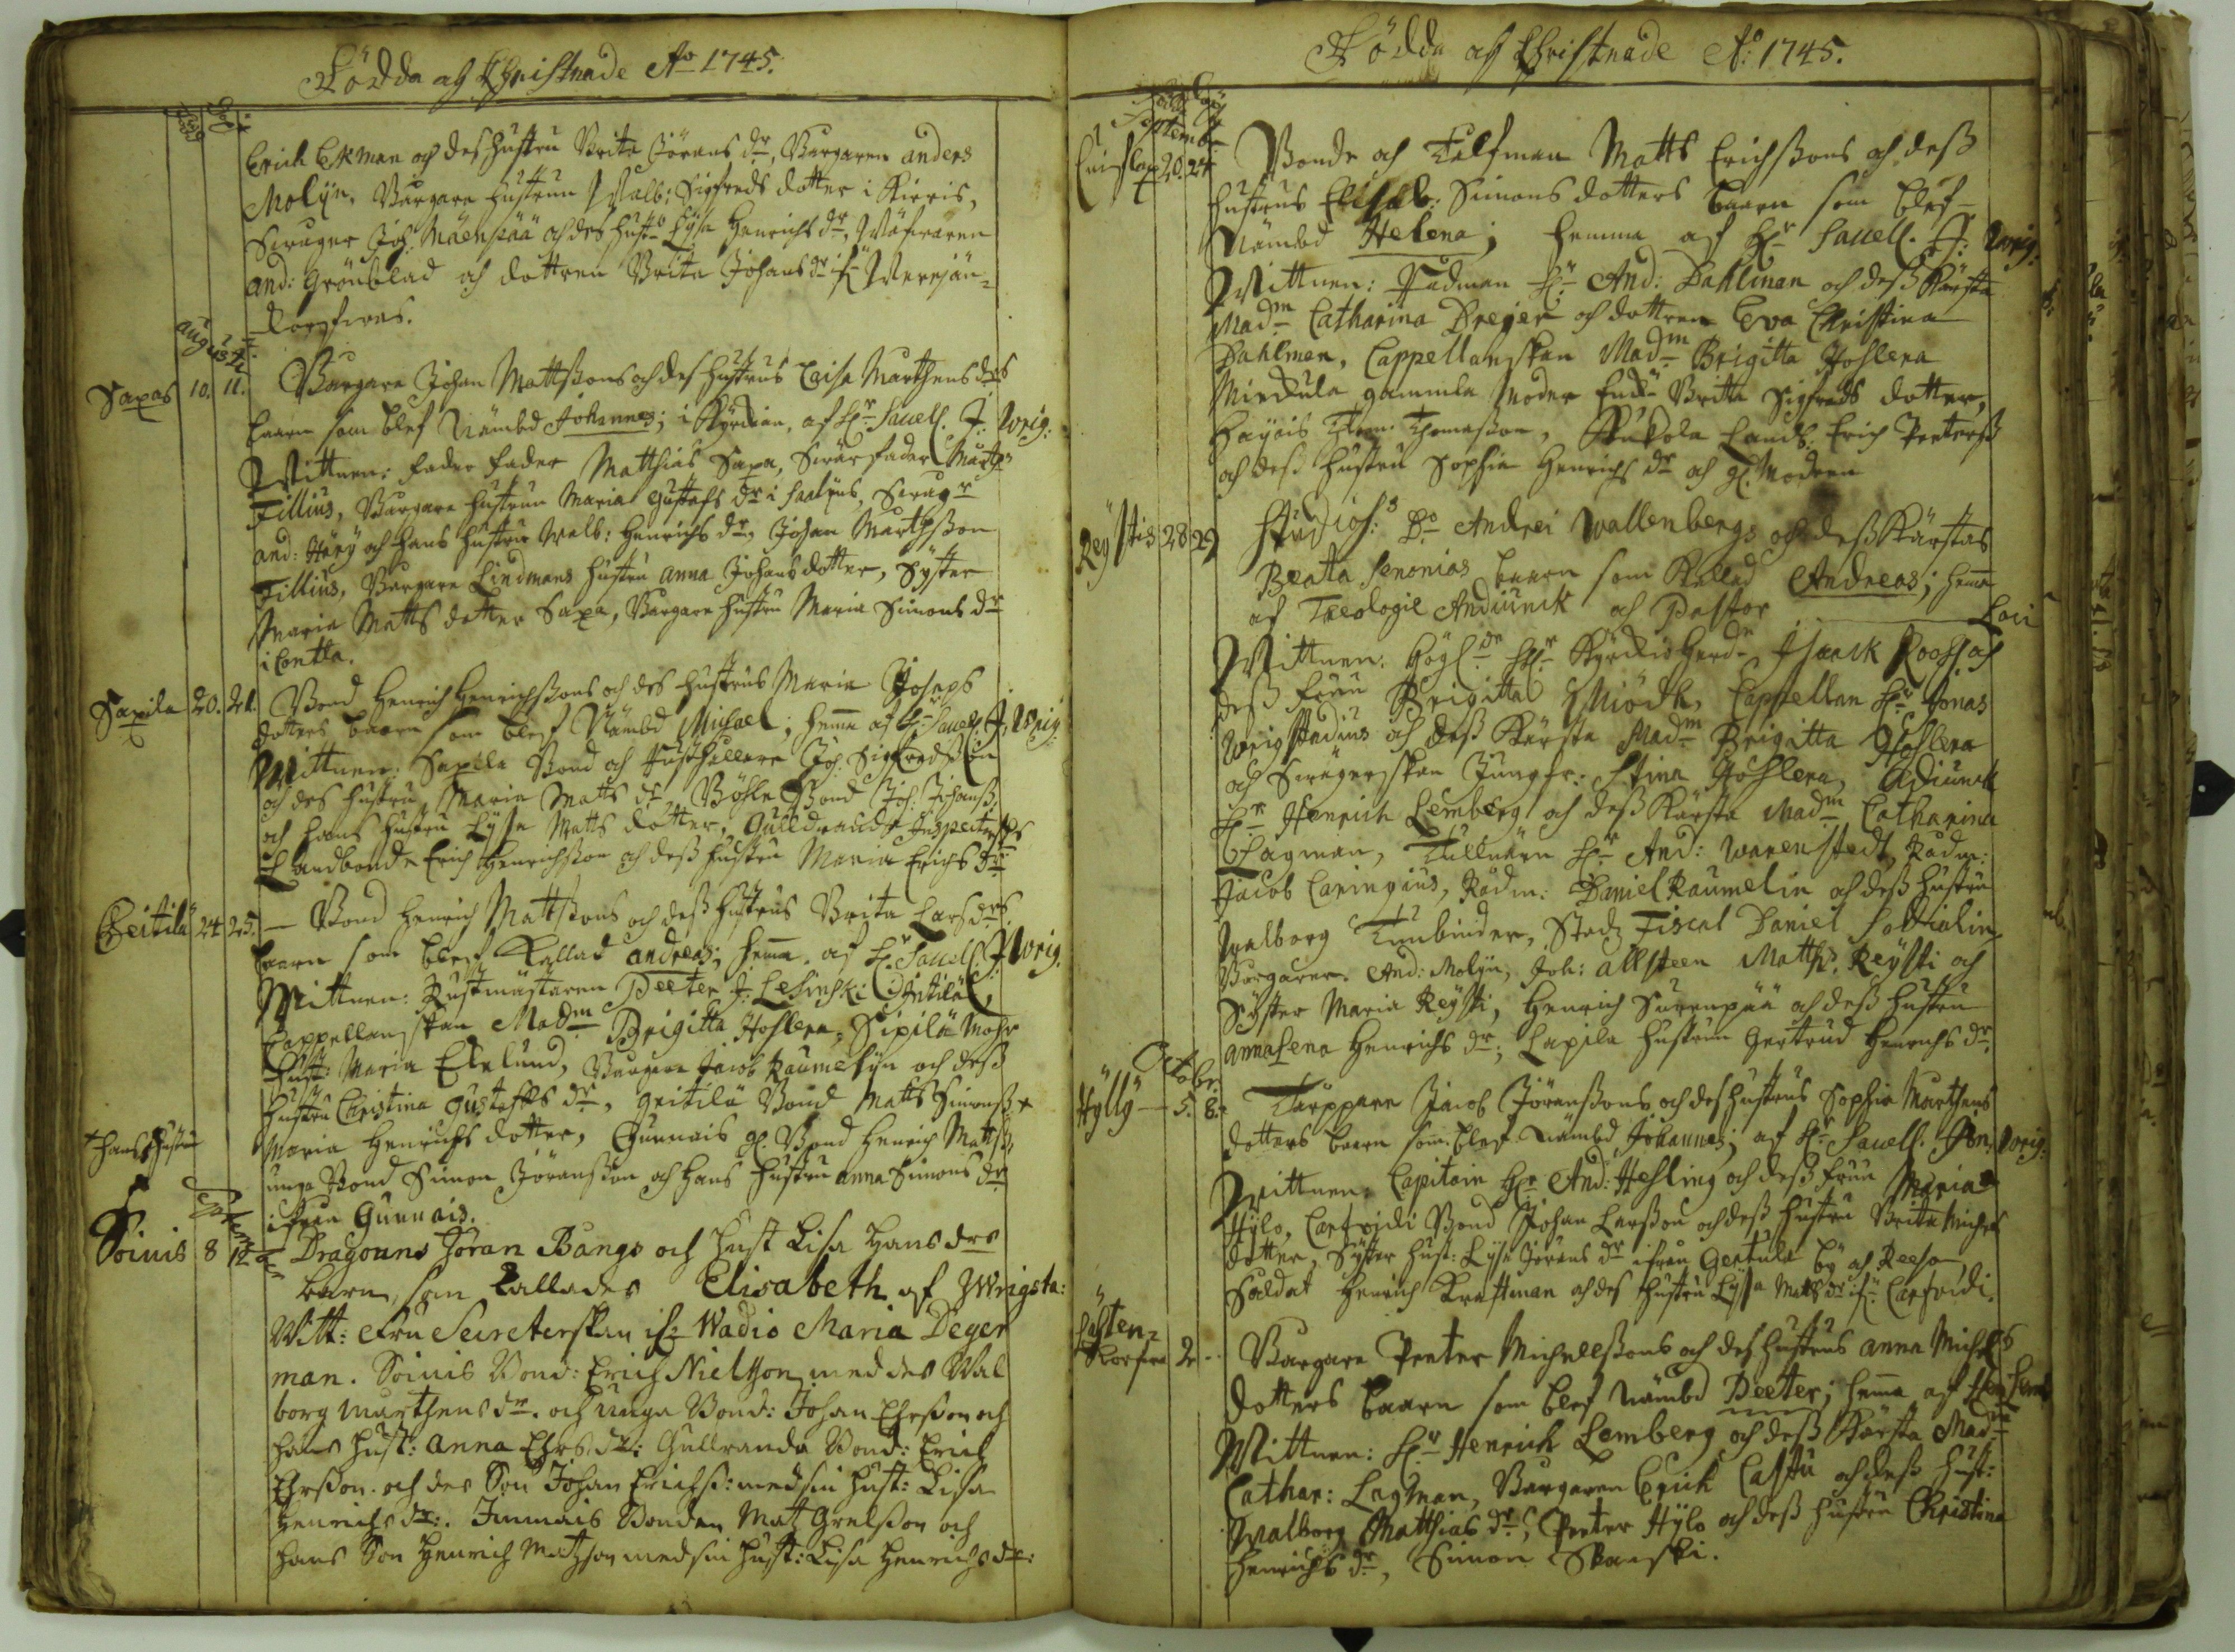 Födda och Christnade Ao 1745.
Erich Ekman och des hustru Brita Jörans dr, Borgaren anders
Molijn, Borgare hustrun Walb: Sigfreds dotter i Kirris,
Swuger Joh. Mäenpää och des hustr Lisa Henrichs dr,
and: Grönblad och dottren Brita Johans dr
Augusti
Saxas 10. 11. Borgare Johan Mattssons och des hustrus Caisa Marthens drs
baarn som blef Nämbd Johannes; i Kyrckian, af Hr Sacell. J: Wrig:
Wittnen: fader fader Matthias Saxa, Swär fader Marth.
Fillius, Borgare hustrun Maria Gustafs dr i
and: Häry och hans hustru Walb: Henrichs dr, Johan Marthsson
Fillius, Borgare Lindmans hustru anna Johans dotter, Syster
Maria Matts dotter Saxa, Borgare hustru Maria Simons dr
i Contla.
Saxila 20. 21. Bond Henrich Henrichssons och des hustrus Maria Joseps
dotters baarn som blef Nämbd Michael; hema af Hr Sacell. J. Wrig:
Wittnen: Saxila Bond och Joh. Sigfredsson
och des hustru Maria Matts dr Böhle Bond Joh: Johanss.
och hans hustru Lisa Matts dotter, Gulldrande
Landbonde Erich Henrichsson och dess hustru Maria Erichs dr
Heitilä 24 25. Bond Henrich Mattssons och dess hustrus Brita Lars drs
baarn som blef Kallad andreas; hema. af Hr Sacell. J. Wrig.
Wittnen: Rustmästaren Peeter J:
Cappellanskan Madm Brigitta Hoslera, Sipilä
hustr: Maria Eklund, Borgare Jacob Raumelyn och dess
hustru Christina Gustafs dr, Heitilä Bond Matts Simonss +
+ hans hustru
Maria Henrichs dotter, Gunnais gl. Bond Henrich Mattss,
unga Bond Simon Jöransson och hans hustru anna Simons dr
ifrån Gunnais.
Soinis 8 12 Dragouns Jöran Bangs och hust Lisa Hans drs
barn, som kallades Elisabeth af Wrigsta:
Witt: Fru Secreterskan Wadio Maria Deger
man. Soinis Bond: Erich Nielsson med des Wal
borg Marthens dr. och unga Bond: Johan Ehrsson och
hans hust: anna Ehrs dr: Gullranda Bond: Erich
Ehrsson. och des Son Johan Erichs: med sin hust: Lisa
Henrichs dr:. Immais Bonden Matt Grelsson och
hans Son Henrich Matzson med sin hust: Lisa Henrichs dr:
Födda och Christnade Ao: 1745.
Septemb
20. 21 Bonde och Matts Erichssons och dess
hustrus Elisab: Simons dotters baarn som blef
Nämbd Helena; hemma af Hr Sacell. J: Wrig:
Wittnen: Rådman Hr And: Dahlman och dess Kärsta
Madm Catharina Dreijer och dottren Eva Christina
Dahlman, Cappellanskan Madm Brigitta Hoslera
gammla Moder Brita Sigfreds dotter,
Thomasson, Landb. Erich Peterss
och dess hustru Sophia Henrichs dr och gl. Modren
Reÿstis 28 29 Studios: Do Andrei Wallenbergs och dess Kärstas
Beata Senonias baarn som Kallad Andreas; hema
af Theologie Andiunck och Pastor Loci
Wittnen: Hr Kyrckio Herd Isaack Rooss. och
dess fruu Brigitta Miödh, Cappellan Hr Jonas
Wrigstadius och dess Kärsta Madm Brigitta Hoslera
och Swägerskan Jungfr: Stina Hoslera, Adiunck
Hr Henrich Lemberg och dess Kärsta Madm Catharina
Lagman, Tullnärn Hr And: Warenstedt, Rådm:
Jacob Caringius, Rådm: Daniel Raumelin och dess hustru
Walborg Tunbinder, Stadz Fiscal Daniel
Borgaren And: Molijn, Joh: allsteen Matth: Reÿsti och
Syster Maria Reÿsti, Henrich Surenpää och dess hustru
annalena Henrichs dr; Lapila hustrun Gertrud Henrichs dr.
Octobr.
Hÿllÿ 5. 8. Torppare Jacob Jöranssons och des hustrus Sophia Marthens
dotters baarn som blef nämbd Johannes; af Hr Sacell. Jon. Wrig:
Wittnen: Capitain Hr And: Hesling och dess fruu Maria
Hÿlo, Bond Johan Larsson och dess hustru Brita Michels
dotter, Syster hust: Lisa Jörans dr ifrån
Soldat Henrich Kraftman och des hustru Lisa Matts dr
2 Borgare Peeter Michelssons och des hustrus anna Michels
dotters baarn som blef Nämbd Peeter; hema af
Wittnen: Hr Henrich Lemberg och dess Kärsta Madm
Cathar: Lagman, Borgaren Erich Castu och dess hust:
Walborg Matthias dr, Peeter Hÿlo och dess hustru Christina
Henrichs dr, Simon